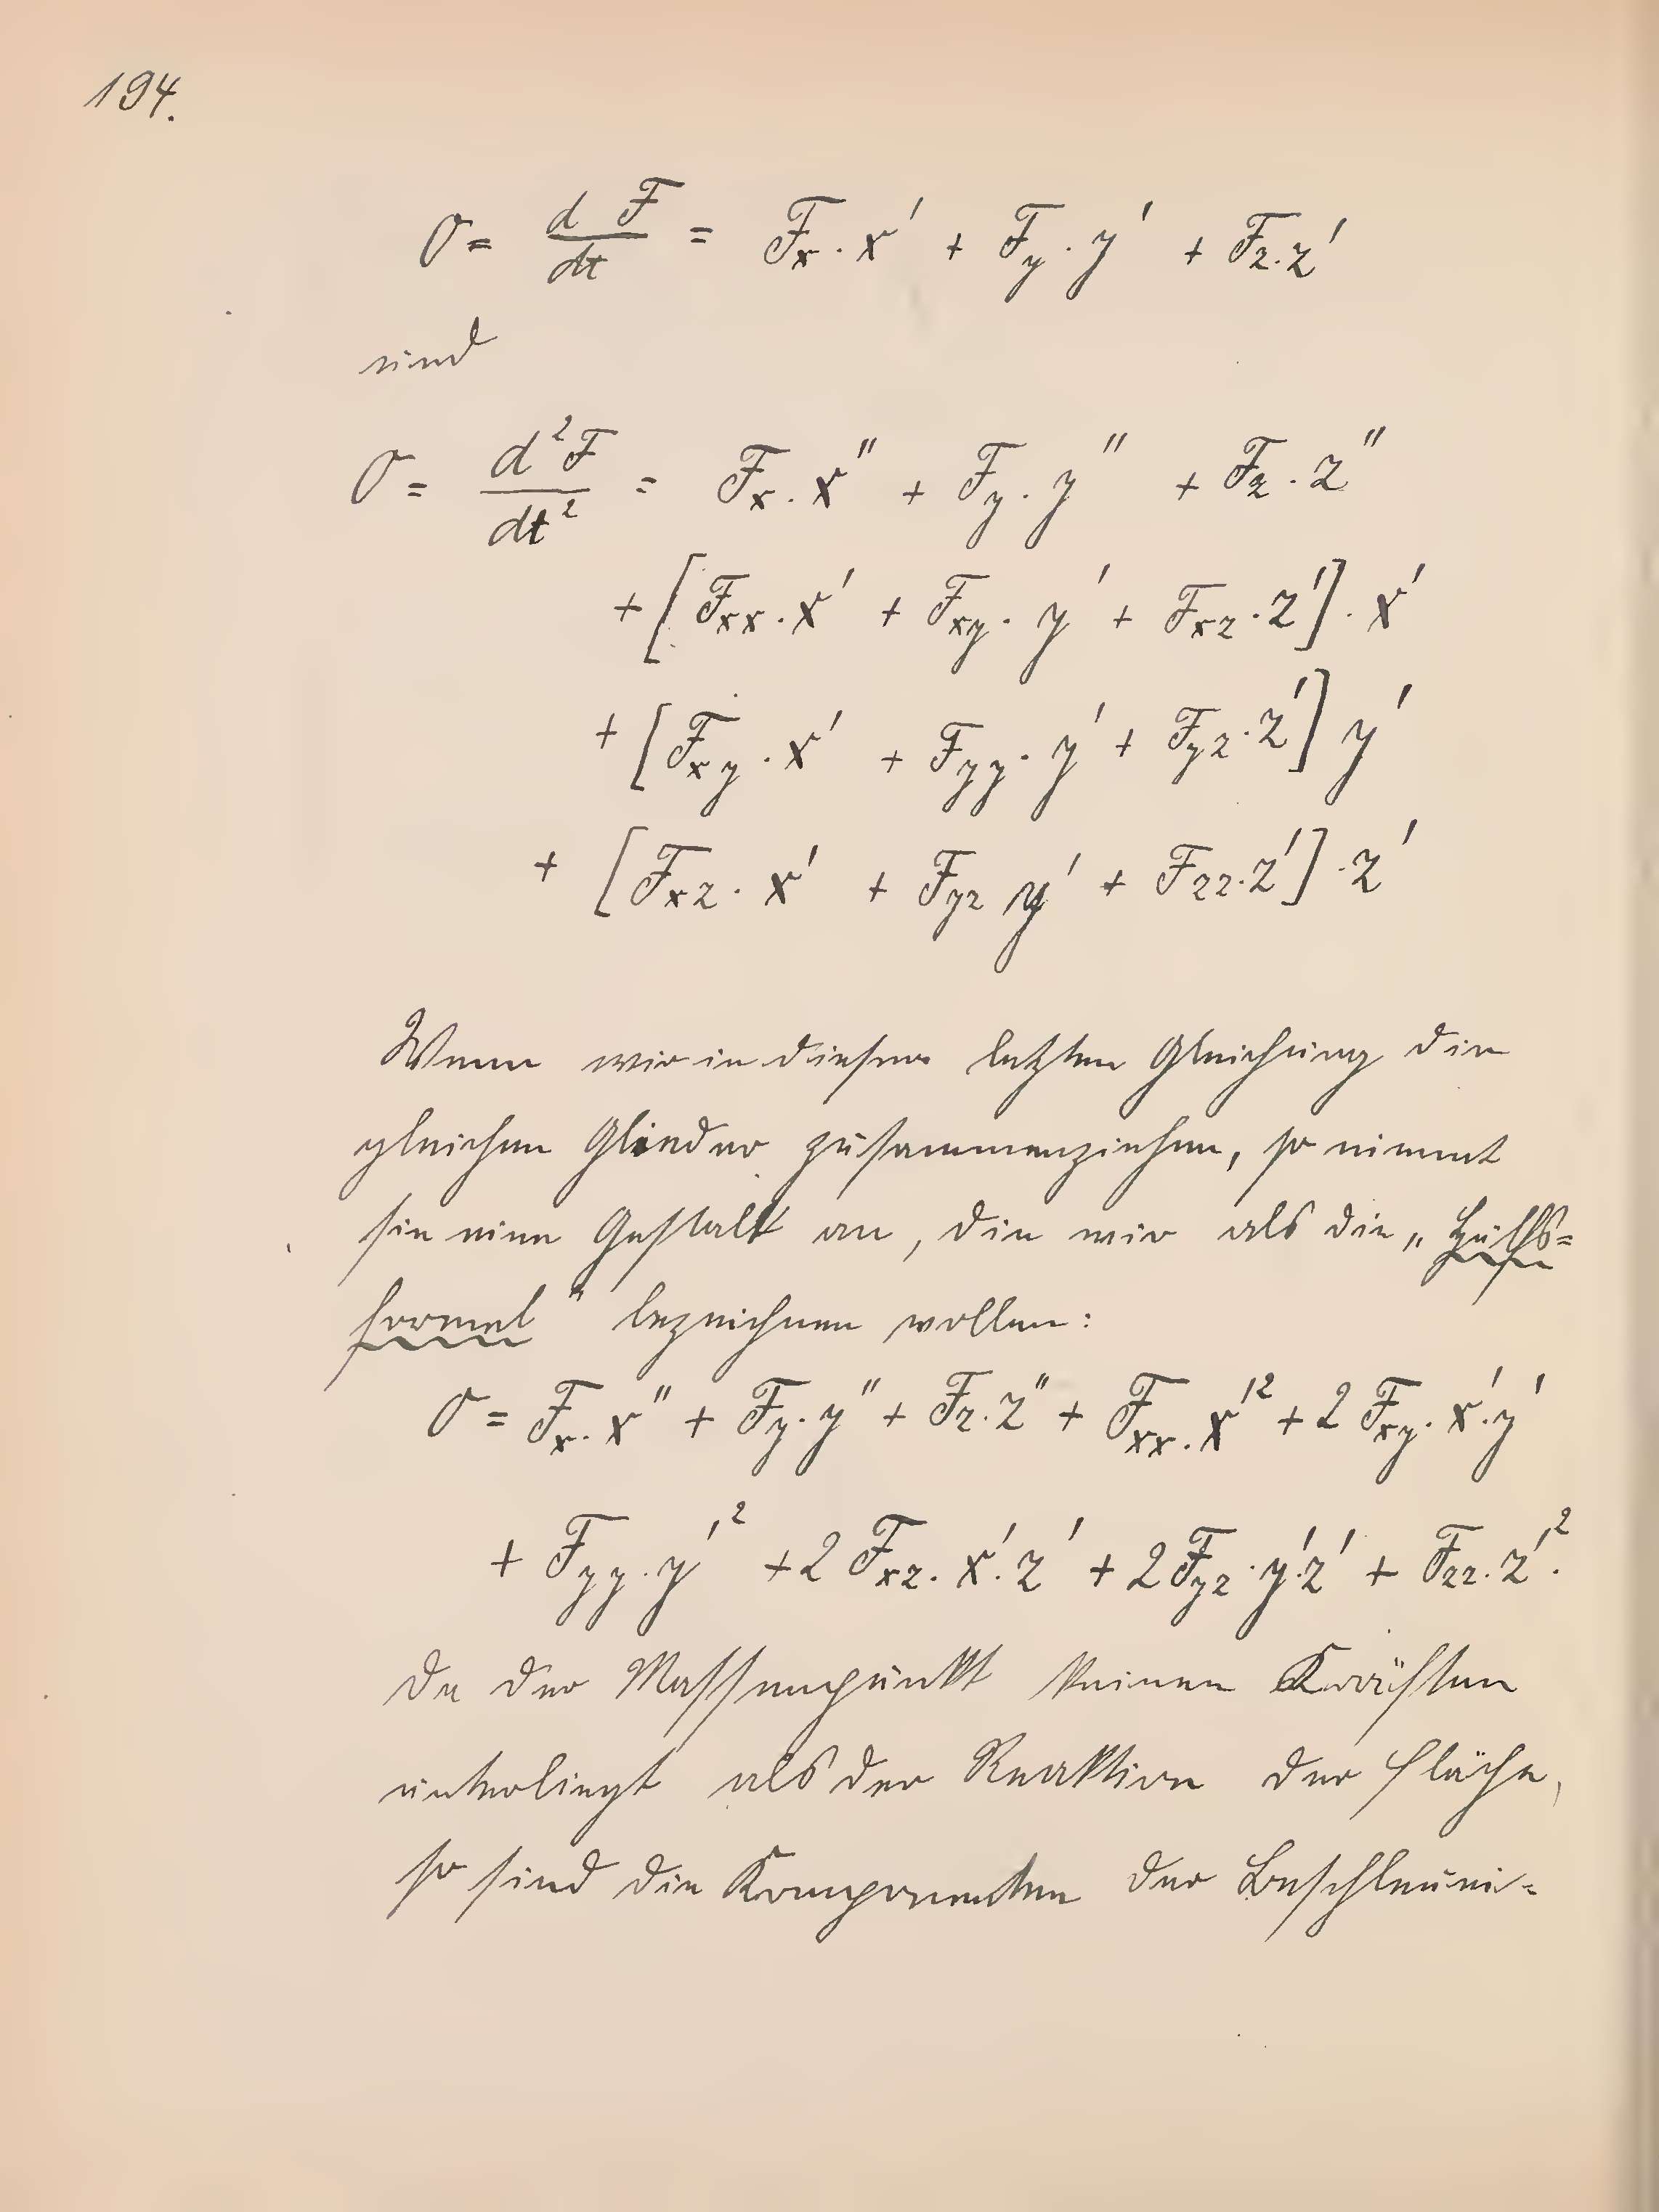 194.
0 = dF/dt = F_x · x' + F_y · y' + F_z · z'
und
0 = d²F/dt² = F_x · x'' + F_y · y'' + F_z · z''
+ [F_xx · x' + F_xy · y' + F_xz · z'] · x'
+ [F_xy · x' + F_yy · y' + F_yz · z'] y'
+ [F_xz · x' + F_yz y' + F_zz · z'] · z'
Wenn wir in dieser letzten Gleichung die
gleichen Glieder zusammenziehen, so nimmt
sie eine Gestalt an, die wir als die „Hülfs=
formel" bezeichnen wollen:
0 = F_x · x'' + F_y · y'' + F_z · z'' + F_xx · x'² + 2 F_xy · x' · y'
+ F_yy · y'² + 2 F_xz · x' · z' + 2 F_yz · y' · z' + F_zz · z'².
Da der Massenpunkt keinen Kräften
unterliegt als der Reaktion der Fläche,
so sind die Komponenten der Beschleuni=